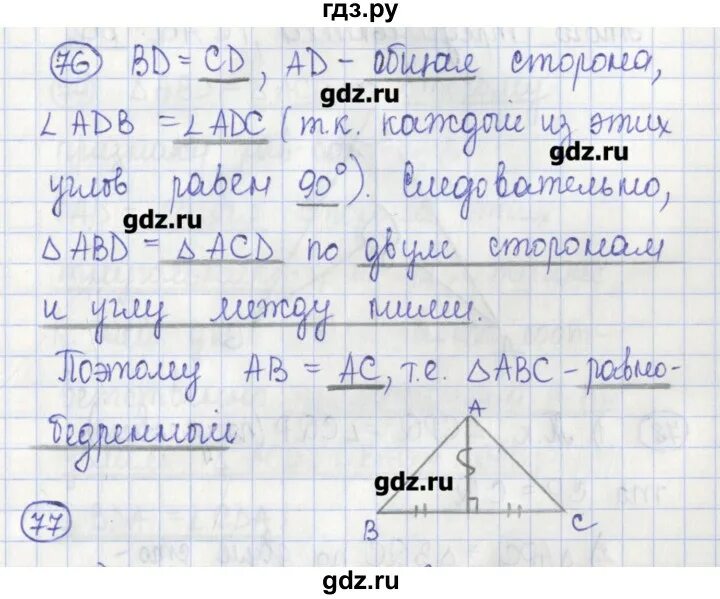 гдз.ру
76 BD = CD, AD - общая сторона,
gdz.ru
∠ADB = ∠ADC (т.к. каждый из этих
gdz.ru
углов равен 90°). Следовательно,
gdz.ru
△ABD = △ACD по двум сторонам
и углу между ними.
Поэтому AB = AC, т.е. △ABC - равно-
бедренный
A
gdz.ru
B
C
77
gdz.ru